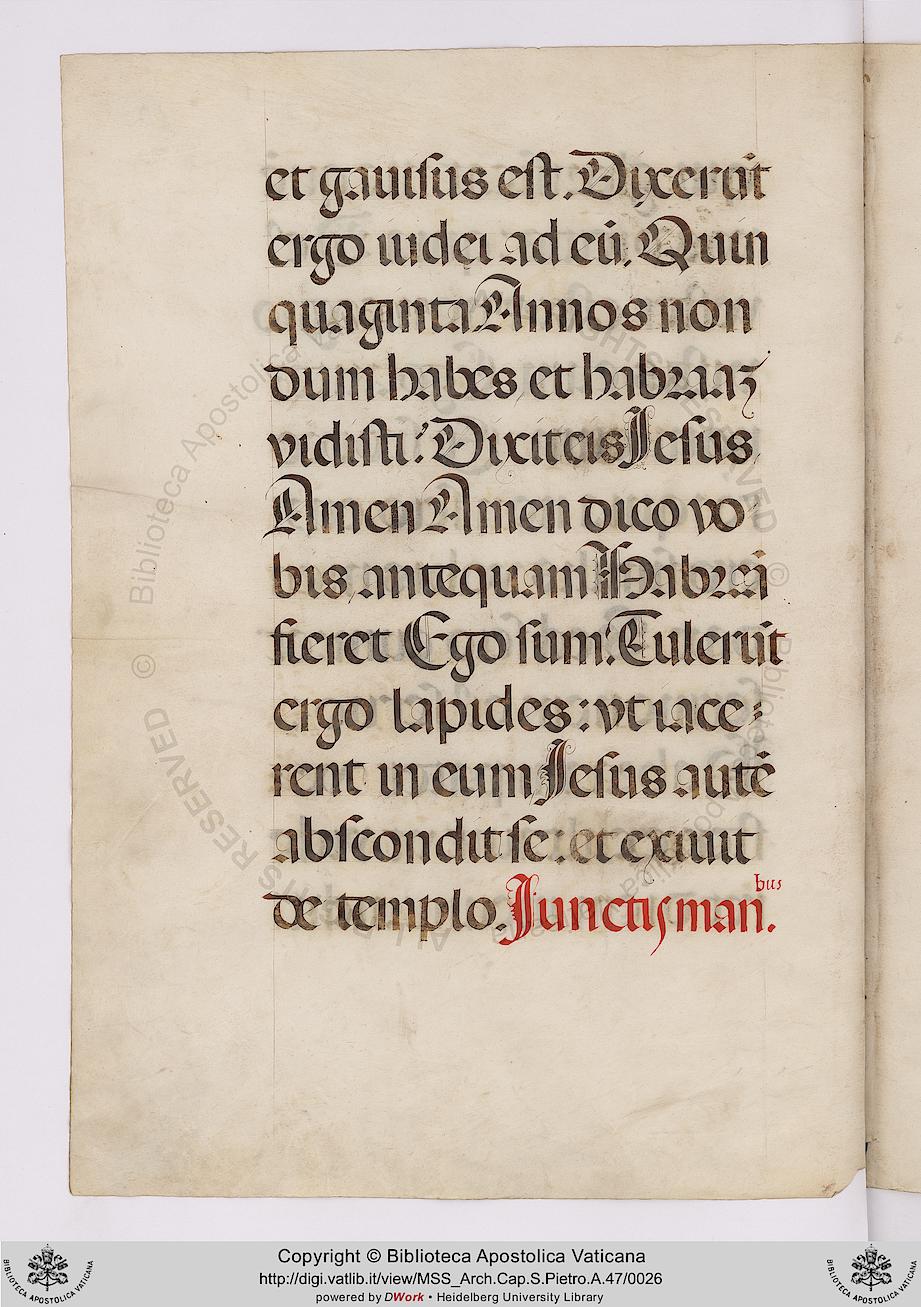 et gauisus est. Dixerūt
ergo iudei ad eū. Quin
quaginta Annos non
dum habes et habraaȝ
vidisti? Dixit eis Jesus
Amen Amen dico vo
bis antequam Habraā
fieret Ego sum. Tulerūt
ergo lapides: vt iace⸗
rent in eum Jesus autē
abscondit se: et exiuit
bus
de templo. Junctis man.
© Biblioteca Apostolica Vaticana
ALL RIGHTS RESERVED
Copyright © Biblioteca Apostolica Vaticana
http://digi.vatlib.it/view/MSS_Arch.Cap.S.Pietro.A.47/0026
powered by DWork • Heidelberg University Library
BIBLIOTECA APOSTOLICA VATICANA
BIBLIOTECA APOSTOLICA VATICANA